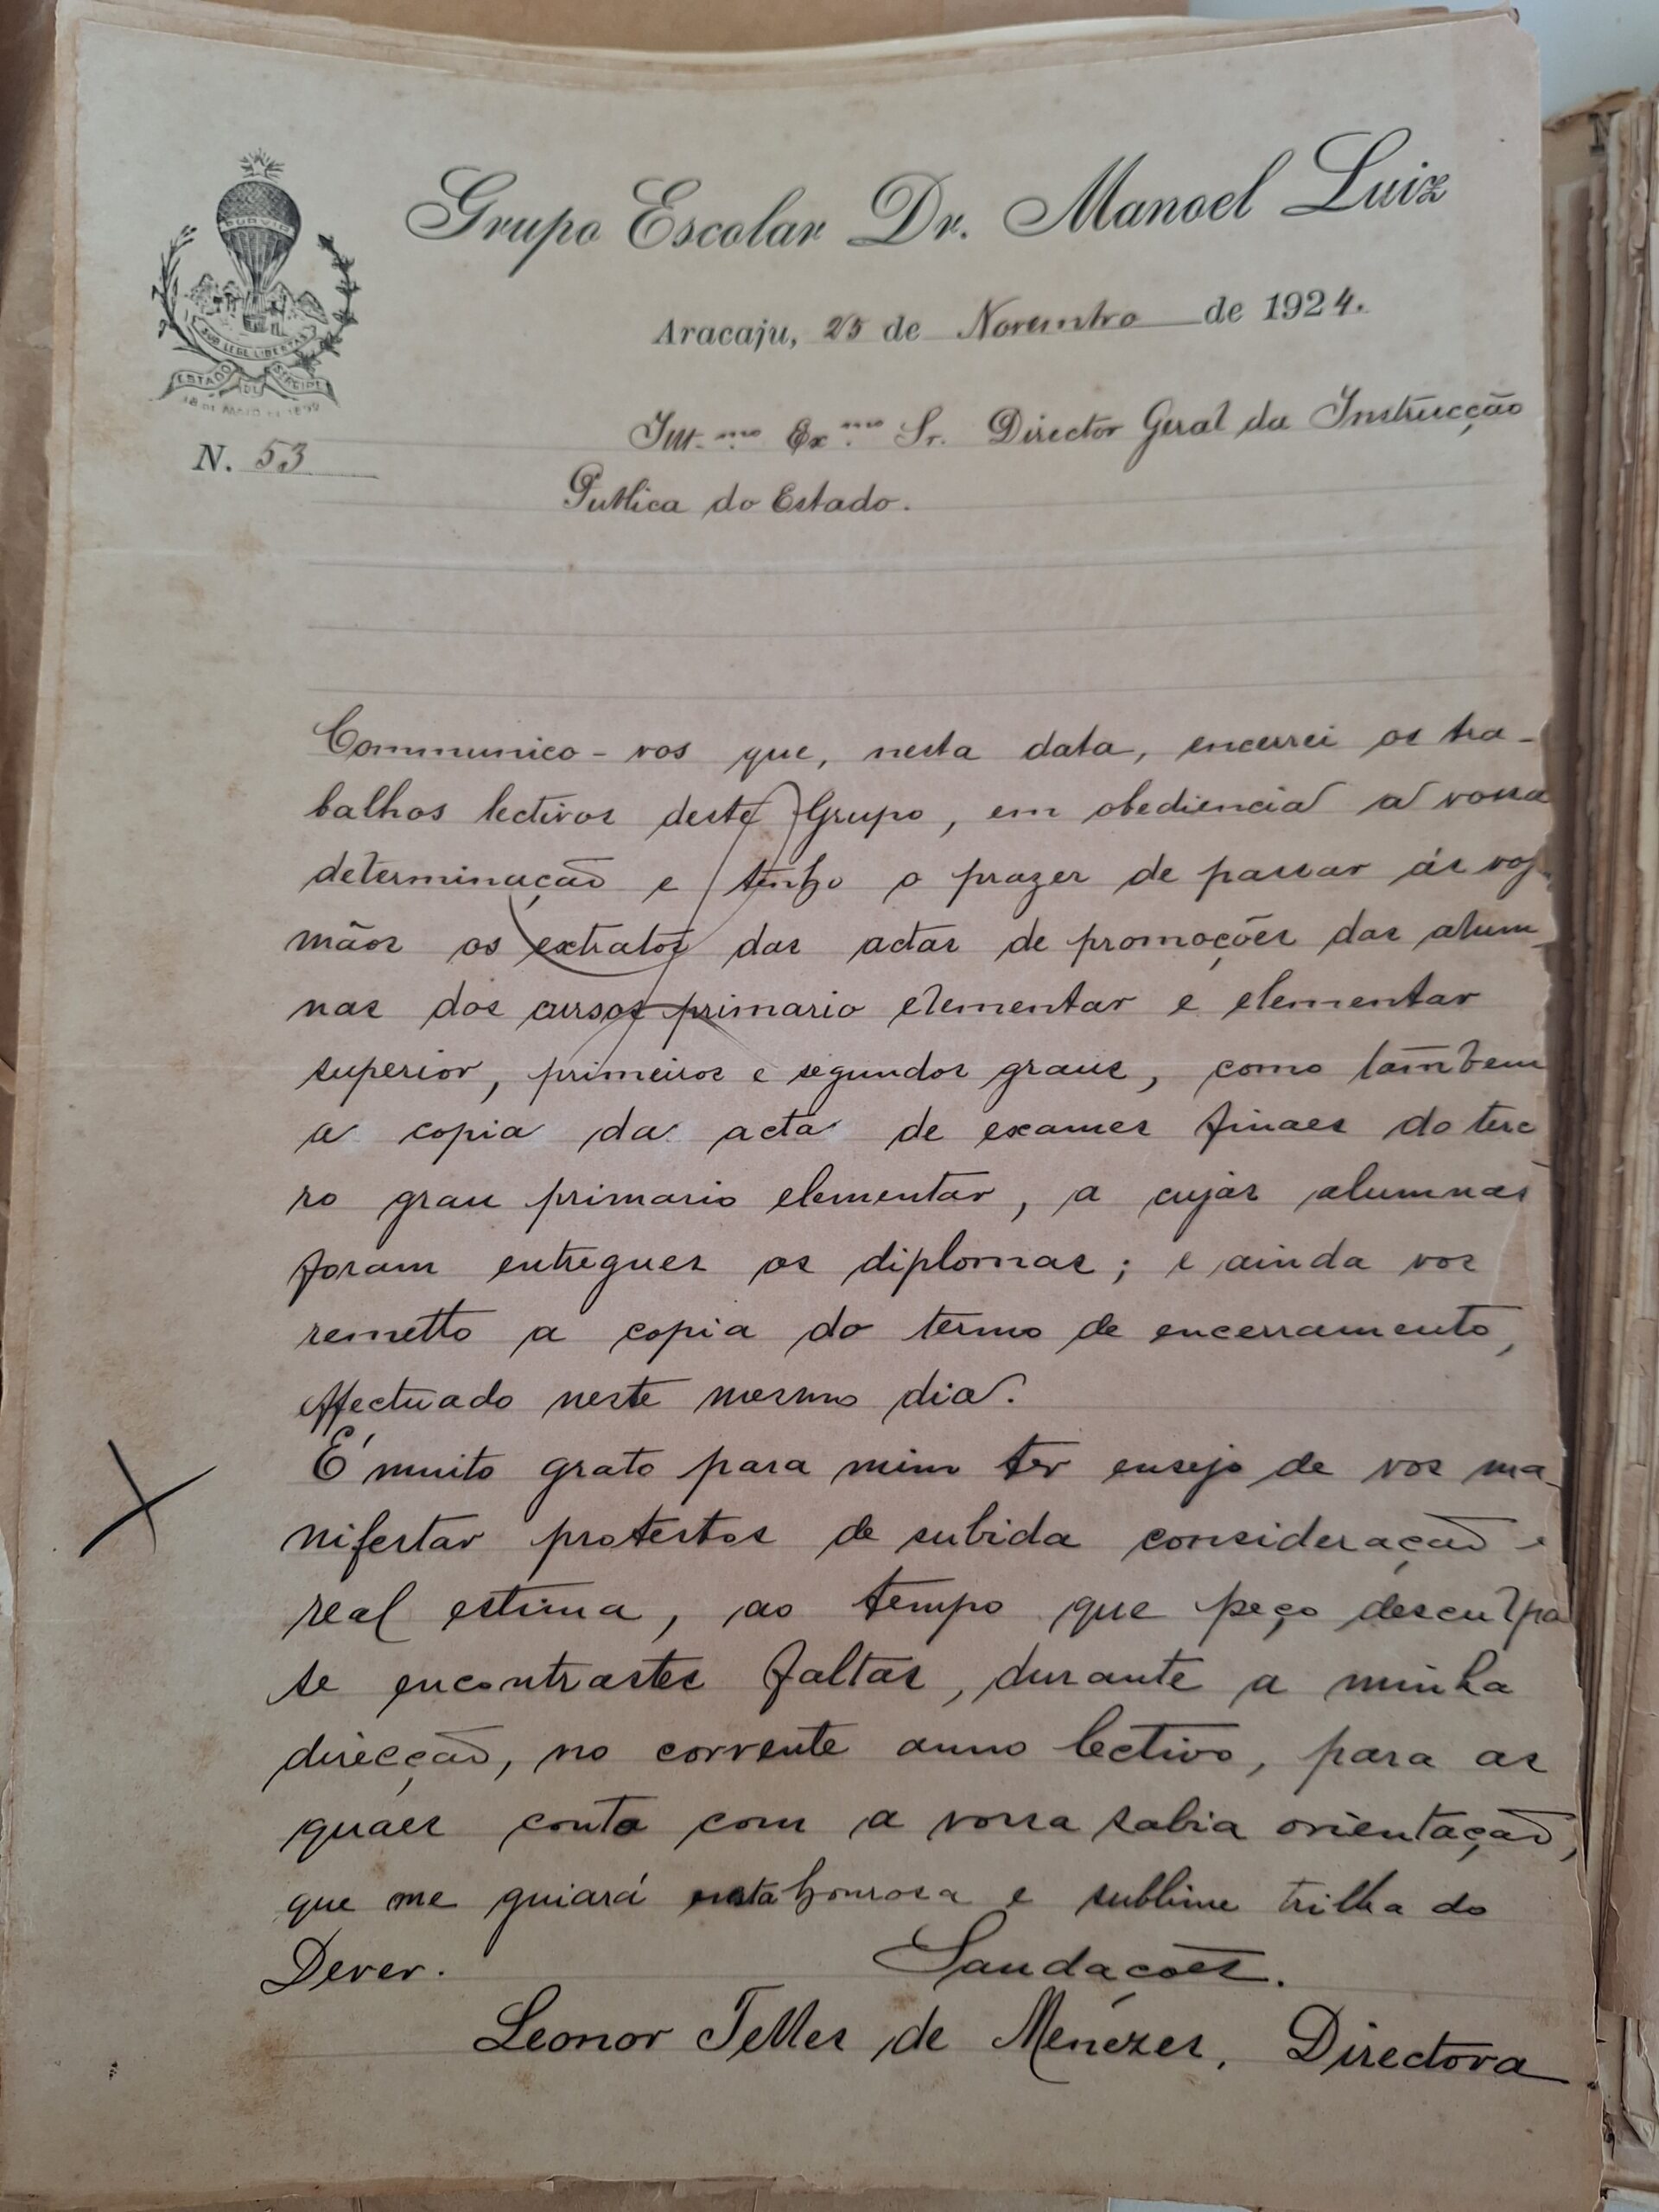 Grupo Escolar Dr. Manoel Luiz
Aracaju, 25 de Novembro de 1924.
PORVIR
SUB LEGE LIBERTAS
ESTADO DE SERGIPE
18 DE MAIO DE 1892
N. 53
Ill.mo Ex.mo Sr. Director Geral da Instrucção
Publica do Estado.
Communico-vos que, nesta data, encerrei os tra-
balhos lectivos deste Grupo, em obediencia a vossa
determinação e tenho o prazer de passar ás vos
mãos os extratos das actas de promoções das alum
nas dos cursos primario elementar e elementar
superior, primeiros e segundos graus, como tambem
a copia da acta de exames finaes do terc
ro grau primario elementar, a cujas alumnas
foram entregues os diplomas; e ainda vos
remetto a copia do termo de encerramento,
effectuado neste mesmo dia.
É muito grato para mim ter ensejo de vos ma-
nifestar protestos de subida consideração e
real estima, ao tempo que peço desculpa
se encontrastes faltas, durante a minha
direcção, no corrente anno lectivo, para as
quaes conto com a vossa sabia orientação,
que me guiará nesta honrosa e sublime trilha do
Dever. Saudações.
Leonor Telles de Menezes, Directora.